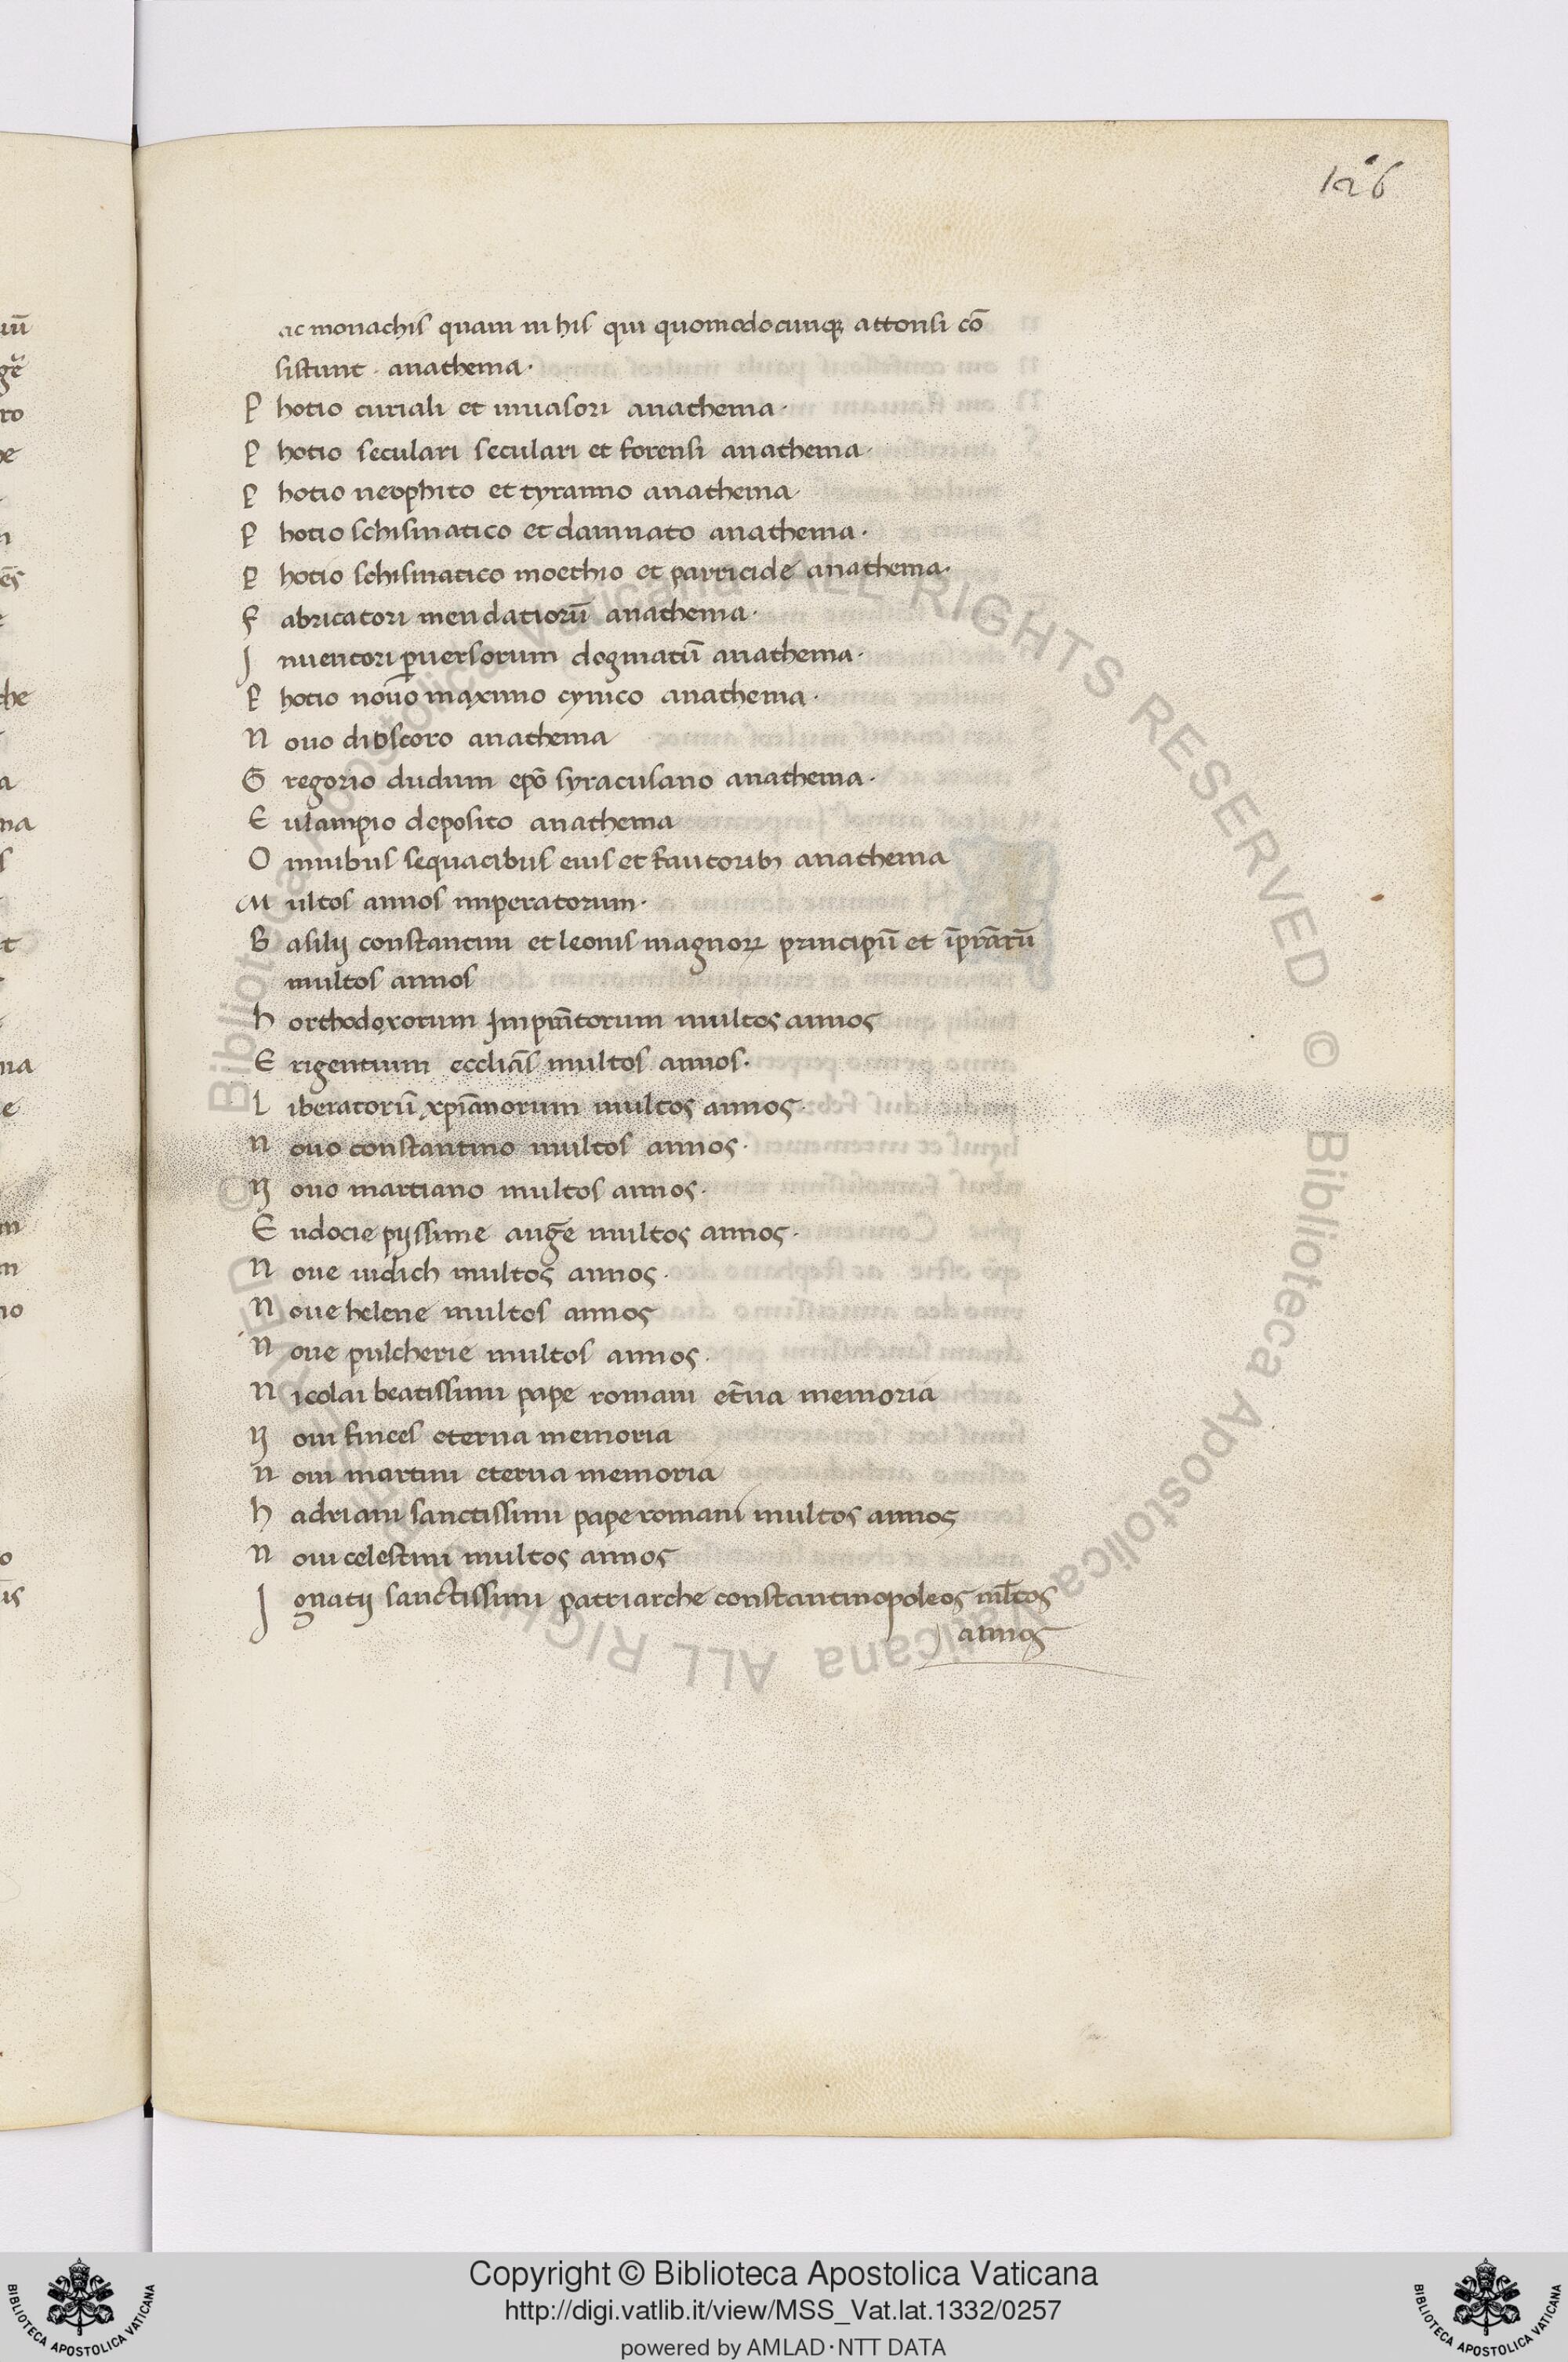 126
ac monachis quam in his qui quomodocunqꝫ attonsi cō
sistunt · anathema ·
P hotio curiali et inuasori anathema ·
P hotio seculari seculari et forensi anathema ·
P hotio neophito et tyranno anathema ·
P hotio schismatico et damnato anathema ·
P hotio schismatico moechio et parricide anathema ·
F abricatori mendatiorū anathema ·
J nuentori ꝑuersorum dogmatū anathema ·
P hotio nouo maximo cynico anathema ·
N ouo dioscoro anathema
G regorio dudum epō syraculano anathema ·
E ulampio deposito anathema
O mnibus sequacibus eius et fautoribꝫ anathema
M ultos annos imperatorum ·
B asilij constantini et leonis magnorꝝ principū et īprātū
multos annos
h orthodoxorum Imprātorum multos annos
E rigentium eccliās multos annos ·
L iberatorū xp̄ianorum multos annos ·
N ouo constantino multos annos ·
N ouo martiano multos annos ·
E udocie pijssime augē multos annos ·
N oue iudich multos annos ·
N oue helene multos annos
N oue pulcherie multos annos ·
N icolai beatissimi pape romani et̄na memoria
N oui finces eterna memoria
N oui martini eterna memoria
h adriani sanctissimi pape romani multos annos
N oui celestini multos annos
J gnatij sanctissimi patriarche constantinopoleos ml̄tos
annos
© Biblioteca Apostolica Vaticana ALL RIGHTS RESERVED © Biblioteca Apostolica Vaticana ALL RIGHTS RESERVED
Copyright © Biblioteca Apostolica Vaticana
http://digi.vatlib.it/view/MSS_Vat.lat.1332/0257
powered by AMLAD·NTT DATA
BIBLIOTECA APOSTOLICA VATICANA
BIBLIOTECA APOSTOLICA VATICANA